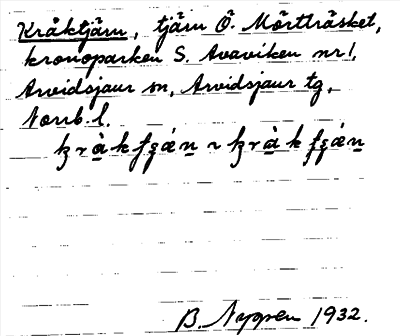 Kråktjärn, tjärn Ö. Mörtträsket,
kronoparken S. Avaviken nr 1,
Arvidsjaur sn, Arvidsjaur tg,
Norrb. l.
B. Nygren 1932.